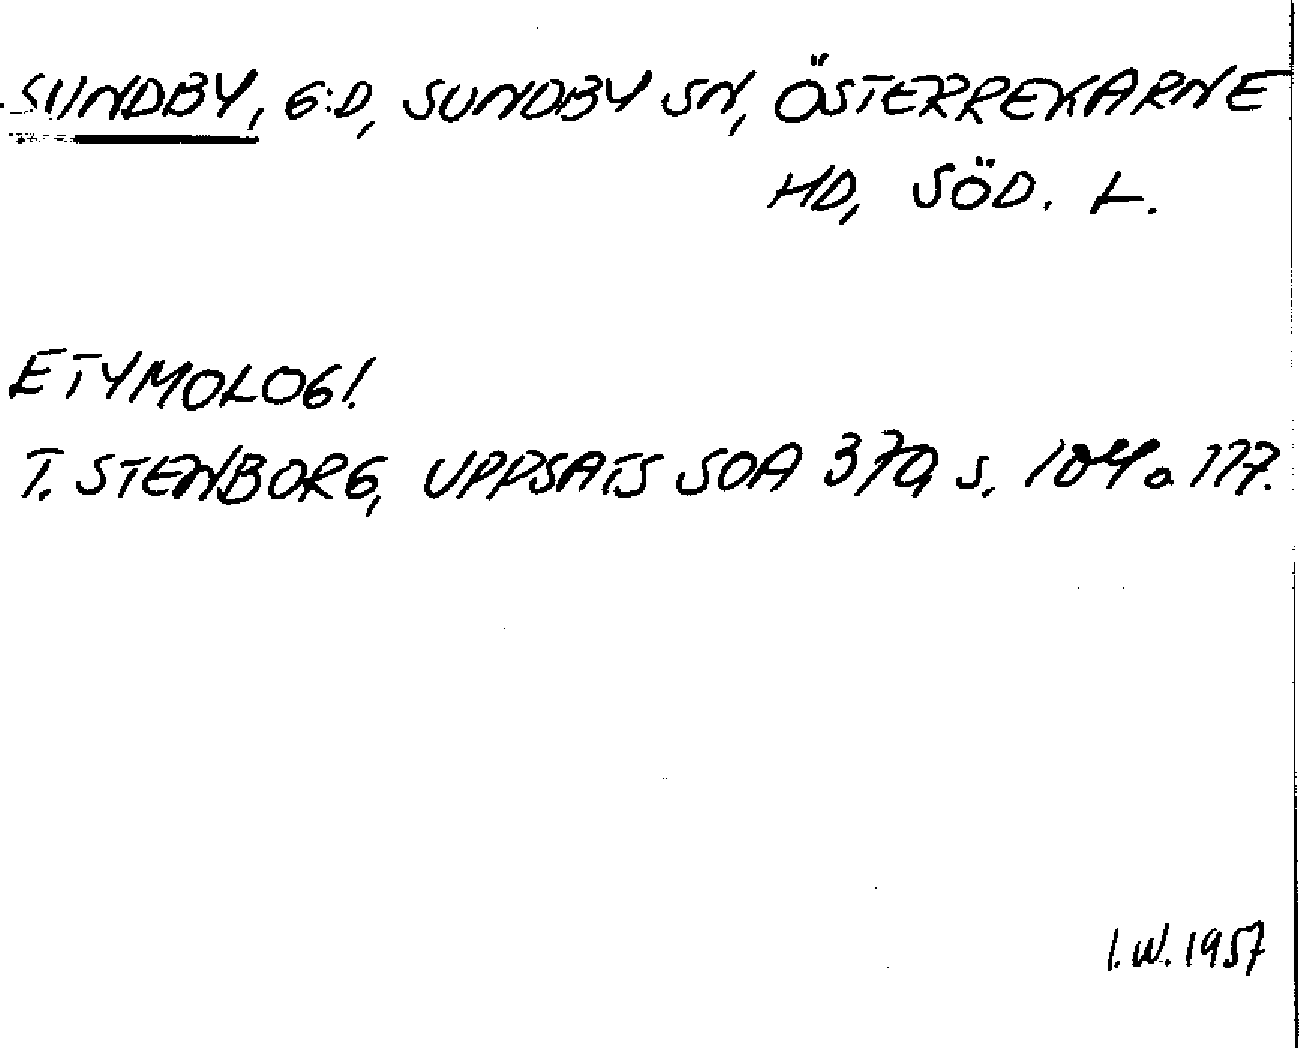 SUNDBY, G:D, SUNDBY SN, ÖSTERREKARNE
HD, SÖD. L.
ETYMOLOGI.
T. STENBORG, UPPSATS SOA 379, S. 104 o 177.
I.W. 1957